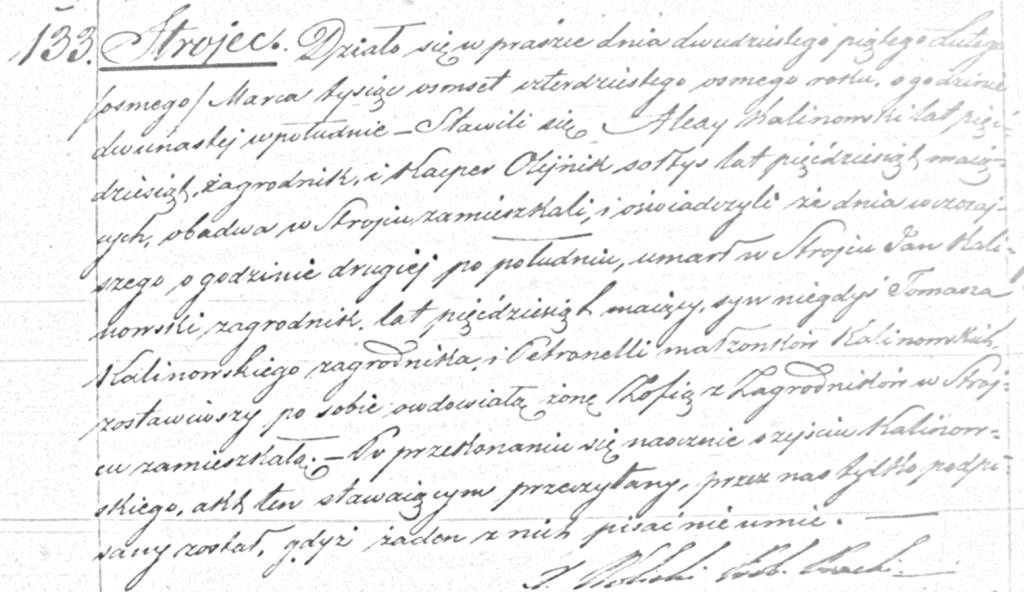 133. Strojec. Działo się w praszce dnia dwudziestego piątego Lutego
/osmego/ Marca tysiąc osmset czterdziestego osmego roku, o godzinie
dwunastej wpołudnie – Stawili się Kalinowski lat pięć-
dziesiąt, zagrodnik, i Kacper Olijnik sołtys lat pięćdziesiąt maiąc-
ych, obadwa w Strojcu zamieszkali, i oswiadczyli że dnia wczoraj-
szego o godzinie drugiej po południu, umarł w Strojcu Jan Kali-
nowski zagrodnik, lat pięćdziesiąt maiący, syn niegdyś Tomasza
Kalinowskiego zagrodnika, i Petronelli małżonków Kalinowskich,
zostawiwszy po sobie owdowiałą żonę Zofią z Zagrodników w Stroj-
cu zamieszkałą. – Po przekonaniu się naocznie o zejściu Kalinow-
skiego, akt ten stawaiącym przeczytany, przez nas tylko podpi-
sany został, gdyż żaden z nich pisać nie umie. —